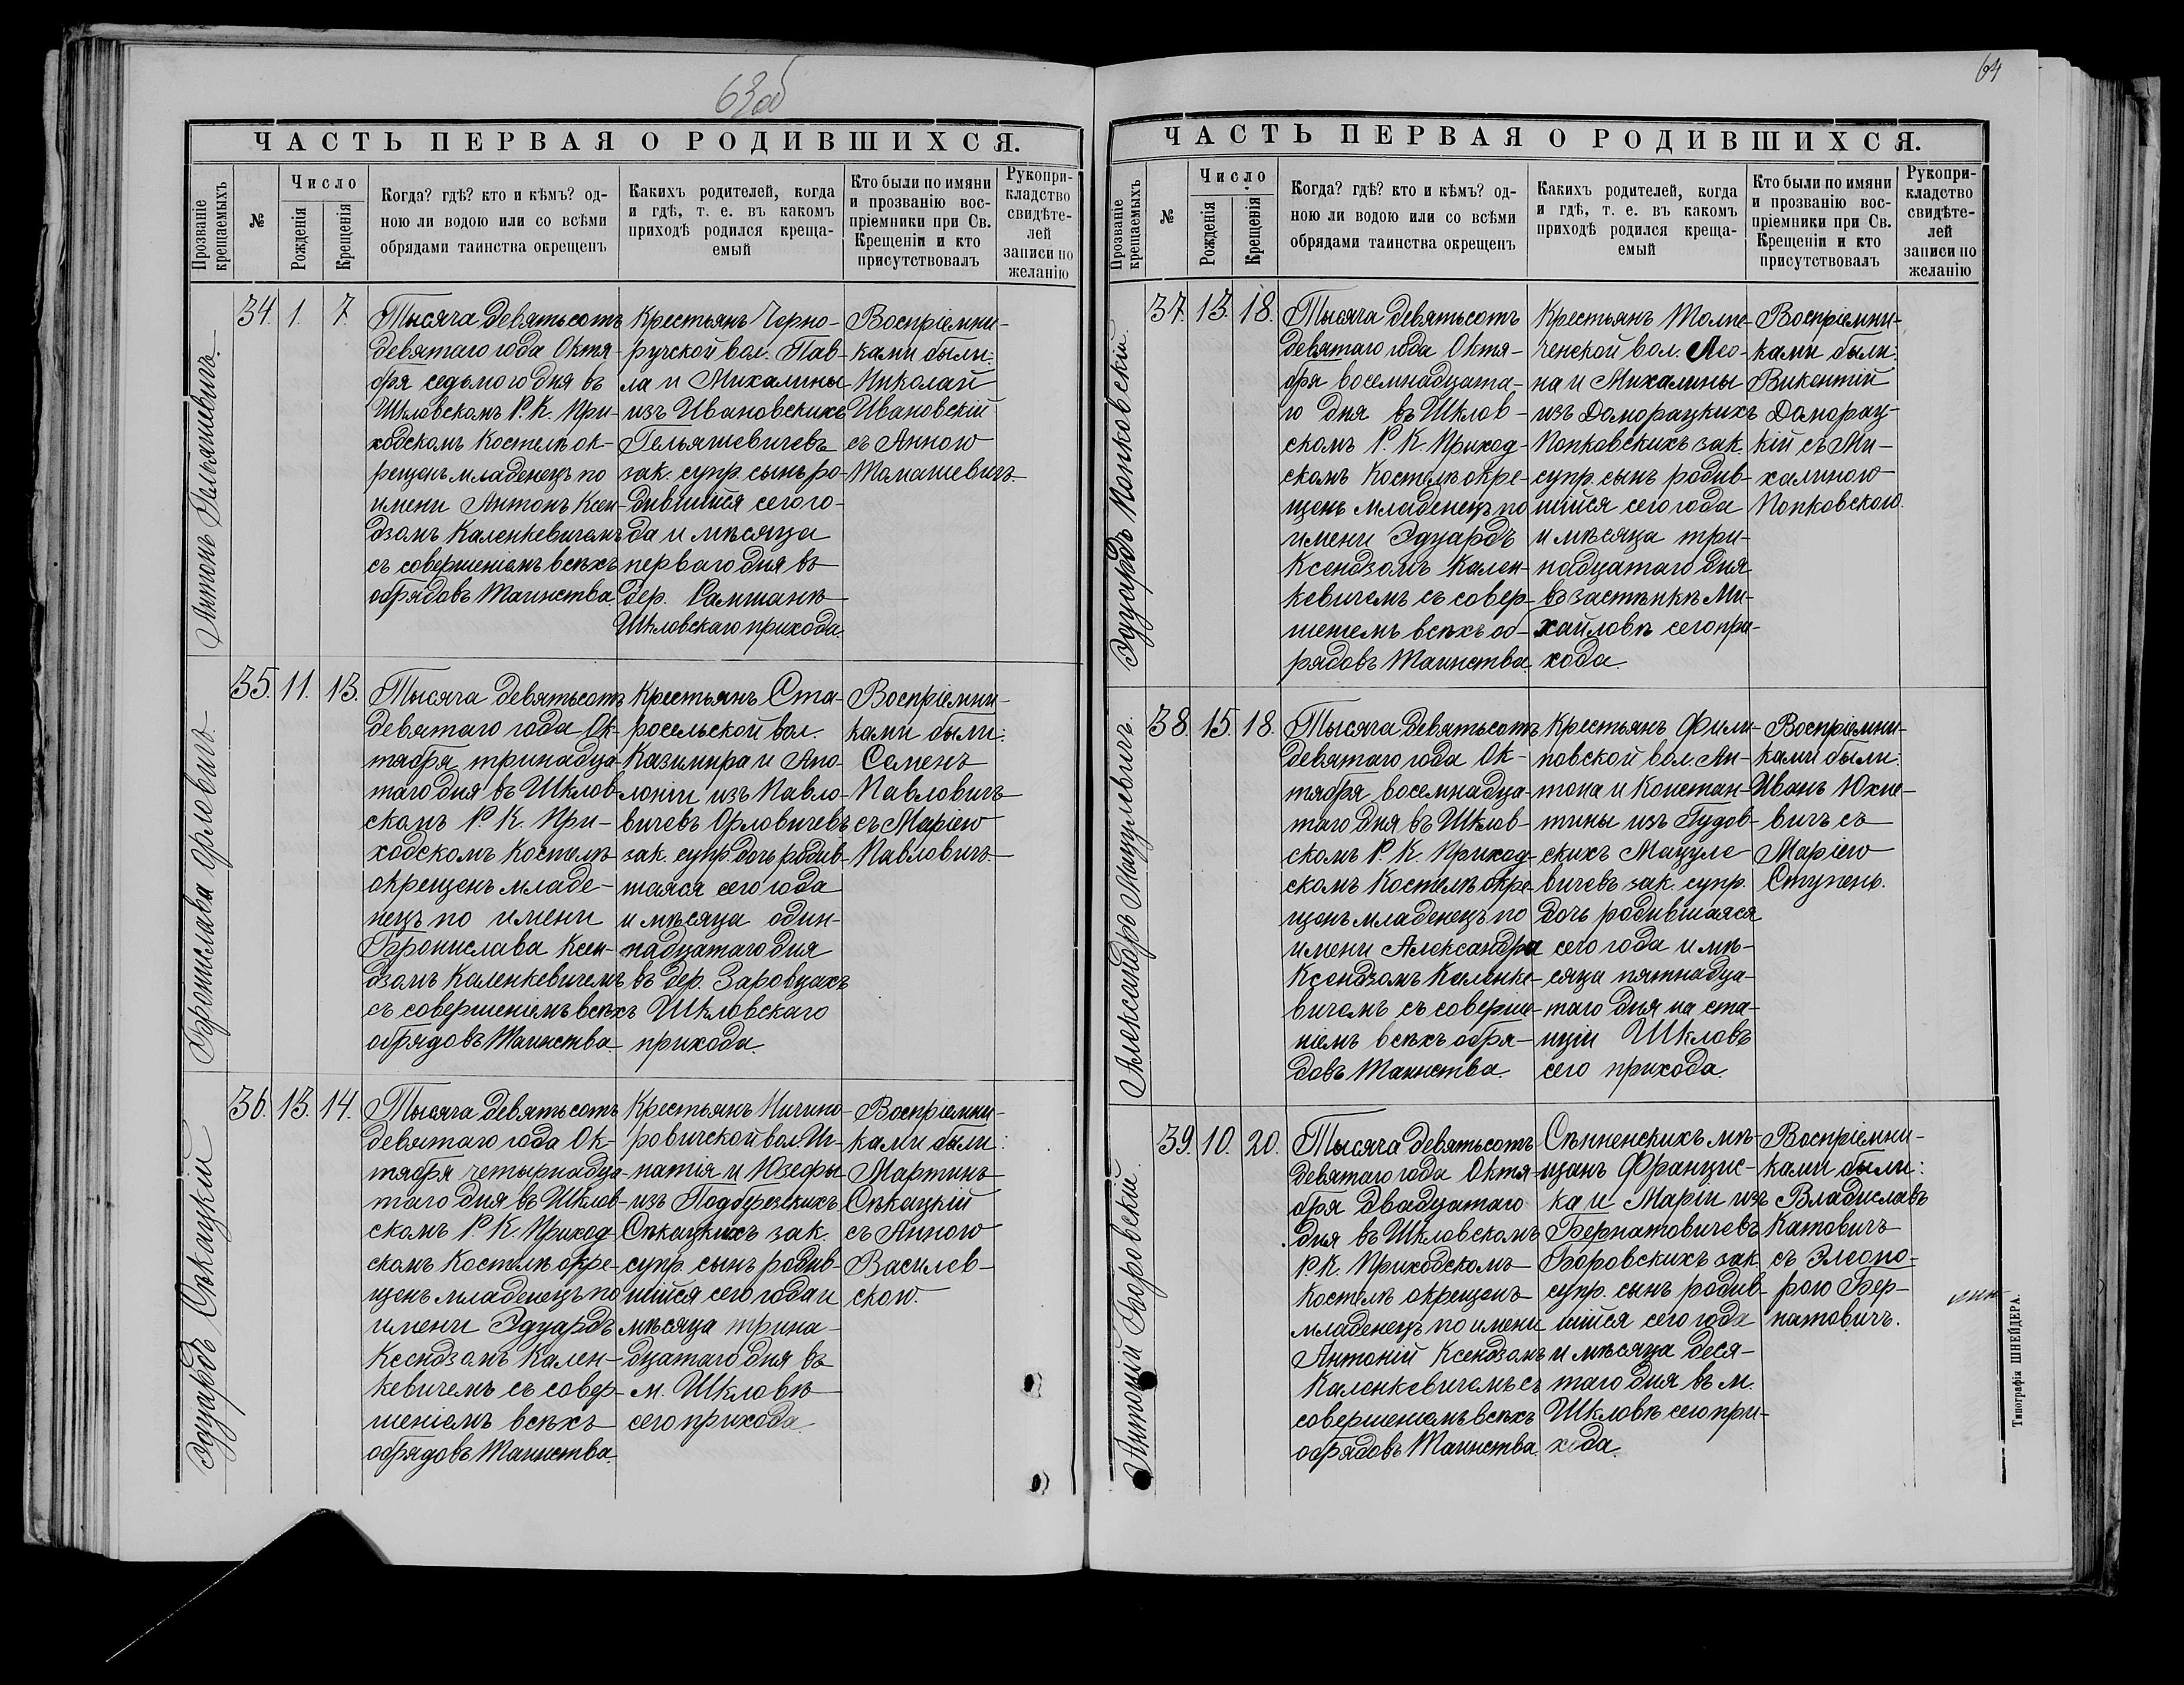 63об
ЧАСТЬ ПЕРВАЯ О РОДИВШИХСЯ.
Прозваніе крещаемыхъ
№
Число
Рожденія
Крещенія
Когда? гдѣ? кто и кѣмъ? од-
ною ли водою или со всѣми
обрядами таинства окрещенъ
Какихъ родителей, когда
и гдѣ, т. е. въ какомъ
приходѣ родился креща-
емый
Кто были по имяни
и прозванію вос-
пріемники при Св.
Крещеніи и кто
присутствовалъ
Рукопри-
кладство
свидѣте-
лей
записи по
желанію
Антонъ Гельяшевичъ.
34. 1. 7.
Тысяча девятьсотъ
девятаго года Октя-
бря седьмого дня въ
Шкловскомъ Р. К. При-
ходскомъ Костелѣ ок-
рещенъ младенецъ по
имени Антонъ Ксен-
дзомъ Каленкевичемъ
съ совершеніемъ всѣхъ
обрядовъ Таинства.
Крестьянъ Черно-
ручской вол. Пав-
ла и Михалины
изъ Ивановскихъ
Гельяшевичевъ
зак. супр. сынъ ро-
дившійся сего го-
да и мѣсяца
перваго дня въ
дер. Рамшанѣ
Шкловскаго прихода
Воспріемни-
ками были:
Николай
Ивановскій
съ Анною
Томашевичъ.
Бронислава Орловичъ.
35. 11. 13.
Тысяча девятьсотъ
девятаго года Ок-
тября тринадца-
таго дня въ Шклов-
скомъ Р. К. При-
ходскомъ Костелѣ
окрещенъ младе-
нецъ по имени
Бронислава Ксен-
дзомъ Каленкевичемъ
съ совершеніемъ всѣхъ
обрядовъ Таинства.
Крестьянъ Ста-
росельской вол.
Казимира и Апо-
лоніи изъ Павло-
вичевъ Орловичевъ
зак. супр. дочь родив-
шаяся сего года
и мѣсяца один-
надцатаго дня
въ дер. Заровцахъ
Шкловскаго
прихода.
Воспріемни-
ками были:
Семенъ
Павловичъ
съ Маріею
Павловичъ
Эдуардъ Сѣкацкій
36. 13. 14.
Тысяча девятьсотъ
девятаго года Ок-
тября четырнадца-
таго дня въ Шклов-
скомъ Р. К. Приход-
скомъ Костелѣ окре-
щенъ младенецъ по
имени Эдуардъ
Ксендзомъ Кален-
кевичемъ съ совер-
шеніемъ всѣхъ
обрядовъ Таинства.
Крестьянъ Ничипо-
ровичской вол. Иг-
натія и Юзефы
изъ Подберезскихъ
Сѣкацкихъ зак.
супр. сынъ родив-
шійся сего года и
мѣсяца трина-
дцатаго дня въ
м. Шкловѣ
сего прихода.
Воспріемни-
ками были:
Мартинъ
Сѣкацкій
съ Анною
Василев-
скою.
64
ЧАСТЬ ПЕРВАЯ О РОДИВШИХСЯ.
Прозваніе крещаемыхъ
№
Число
Рожденія
Крещенія
Когда? гдѣ? кто и кѣмъ? од-
ною ли водою или со всѣми
обрядами таинства окрещенъ
Какихъ родителей, когда
и гдѣ, т. е. въ какомъ
приходѣ родился креща-
емый
Кто были по имяни
и прозванію вос-
пріемники при Св.
Крещеніи и кто
присутствовалъ
Рукопри-
кладство
свидѣте-
лей
записи по
желанію
Эдуардъ Попковскій.
37. 13. 18.
Тысяча девятьсотъ
девятаго года Октя-
бря восемнадцата-
го дня въ Шклов-
скомъ Р. К. Приход-
скомъ Костелѣ окре-
щенъ младенецъ по
имени Эдуардъ
Ксендзомъ Кален-
кевичемъ съ совер-
шенемъ всѣхъ об-
рядовъ Таинства.
Крестьянъ Толпе-
ченской вол. Лео-
на и Михалины
изъ Доморацкихъ
Попковскихъ зак.
супр. сынъ родив-
шійся сего года
и мѣсяца три-
надцатаго дня
въ застѣнкѣ Ми-
хайловѣ сего при-
хода.
Воспріемни-
ками были:
Викентій
Доморац-
кій съ Ми-
халиною
Попковскою.
Александръ Мацулевичъ.
38. 15. 18.
Тысяча девятьсотъ
девятаго года Ок-
тября восемнадца-
таго дня въ Шклов-
скомъ Р. К. Приход-
скомъ Костелѣ окре-
щенъ младенецъ по
имени Александра
Ксендзомъ Каленке-
вичемъ съ соверше-
ніемъ всѣхъ обря-
довъ Таинства.
Крестьянъ Фили-
повской вол. Ан-
тона и Констан-
тины изъ Гудов-
скихъ Мацуле-
вичевъ зак. супр.
дочь родившаяся
сего года и мѣ-
сяца пятнадца-
таго дня на ста-
нціи Шкловъ
сего прихода.
Воспріемни-
ками были:
Иванъ Юхне-
вичъ съ
Маріею
Ступень.
Антоній Боровскій.
39. 10. 20.
Тысяча девятьсотъ
девятаго года Октя-
бря двадцатаго
дня въ Шкловскомъ
Р. К. Приходскомъ
Костелѣ окрещенъ
младенецъ по имени
Антоній Ксендзомъ
Каленкевичемъ съ
совершеніемъ всѣхъ
обрядовъ Таинства.
Сѣнненскихъ мѣ-
щанъ Францис-
ка и Маріи изъ
Бернатовичевъ
Боровскихъ зак.
супр. сынъ родив-
шійся сего года
и мѣсяца деся-
таго дня въ м.
Шкловѣ сего при-
хода.
Воспріемни-
ками были:
Владиславъ
Катовичъ
съ Элеоно-
рою Бер-
натовичъ.
Типографія ШНЕЙДЕРА.